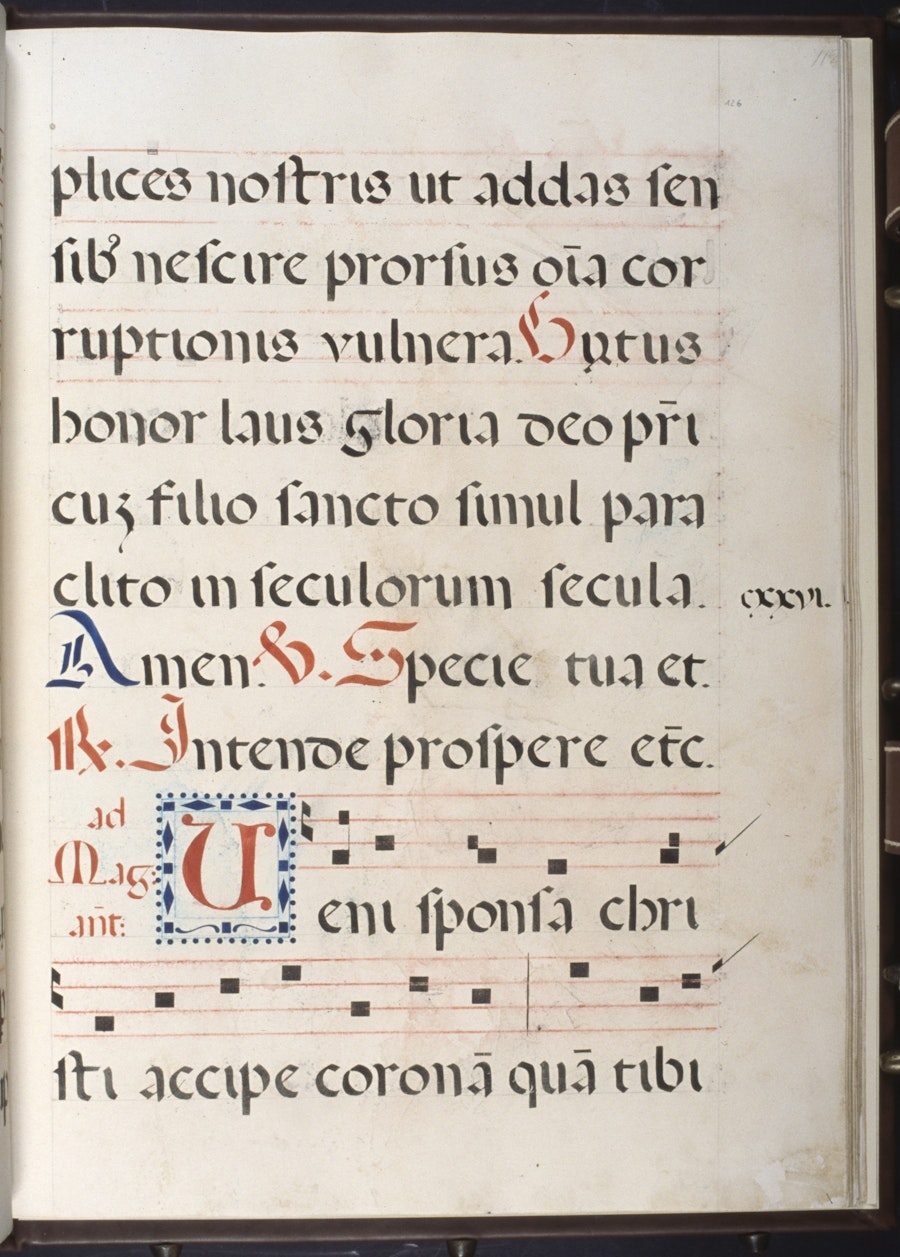 126
plices nostris ut addas sen
sibꝰ nescire prorsus oīa cor
ruptionis vulnera. Vɩrtus
honor laus gloria deo pr̄i
cuȝ filio sancto simul para
clito in seculorum secula.
cxxvi.
Amen. ℣. Specie tua et.
℟. Intende prospere etc̄.
ad
Mag:
an̄t:
Veni sponsa chri
sti accipe coronā quā tibi